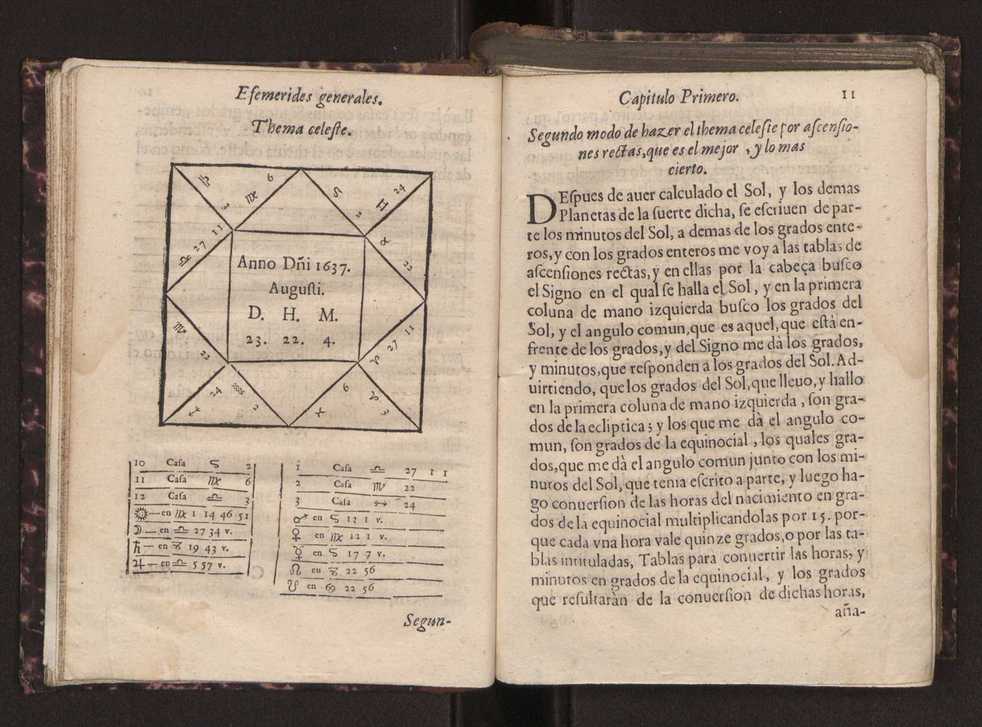 Efemerides generales.
Thema celeſte.
♍ 6
♌ 2
♊ 24
♎ 27 11
♉ 22
♏ 22
♈ 27 11
♐ 24
♒ 2
♓ 6
♈ 3
Anno Dñi 1637.
Auguſti.
D. H. M.
23. 22. 4.
10 Caſa ♌ 2
11 Caſa ♍ 6
12 Caſa ♎ 3
☼—en ♍ 1 14 46 51
☽—en ♎ 27 34 v.
♄—en ♉ 19 43 v.
♃—en ♎ 5 57 v.
1 Caſa ♎ 27 1 1
2 Caſa ♏ 22
3 Caſa ♐ 24
♂ en ♌ 12 1 v.
♀ en ♍ 12 1 v.
☿ en ♌ 17 7 v.
☊ en 22 56
☋ en ♋ 22 56
Segun-
Capitulo Primero. 11
Segundo modo de hazer el thema celeſte por aſcenſio-
nes rectas, que es el mejor , y lo mas
cierto.
DEſpues de auer calculado el Sol, y los demas
Planetas de la ſuerte dicha, ſe eſcriuen de par-
te los minutos del Sol, a demas de los grados ente-
ros, y con los grados enteros me voy a las tablas de
aſcenſiones rectas, y en ellas por la cabeça buſco
el Signo en el qual ſe halla el Sol , y en la primera
coluna de mano izquierda buſco los grados del
Sol, y el angulo comun, que es aquel, que eſtà en-
frente de los grados, y del Signo me dà los grados,
y minutos, que reſponden a los grados del Sol. Ad-
uirtiendo, que los grados del Sol, que lleuo, y hallo
en la primera coluna de mano izquierda , ſon gra-
dos de la ecliptica ; y los que me dà el angulo co-
mun, ſon grados de la equinocial , los quales gra-
dos, que me dà el angulo comun junto con los mi-
nutos del Sol, que tenia eſcrito a parte, y luego ha-
go conuerſion de las horas del nacimiento en gra-
dos de la equinocial multiplicandolas por 15. por-
que cada vna hora vale quinze grados, o por las ta-
blas intituladas, Tablas para conuertir las horas, y
minutos en grados de la equinocial, y los grados
que reſultaràn de la conuerſion de dichas horas,
aña-